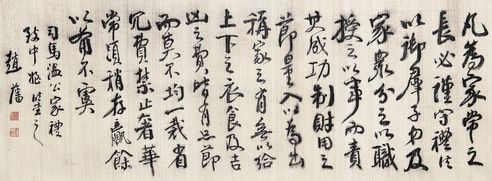 凡為家常之
長必謹守禮法
以御羣子弟及
家衆分之以職
授之以事而責
其成功制財用之
節量入以為出
稱家之有無以給
上下之衣食及吉
凶之費皆有品節
而莫不均一裁省
冗費禁止奢華
常須稍存贏餘
以備不虞
司馬溫公家禮
趙藩